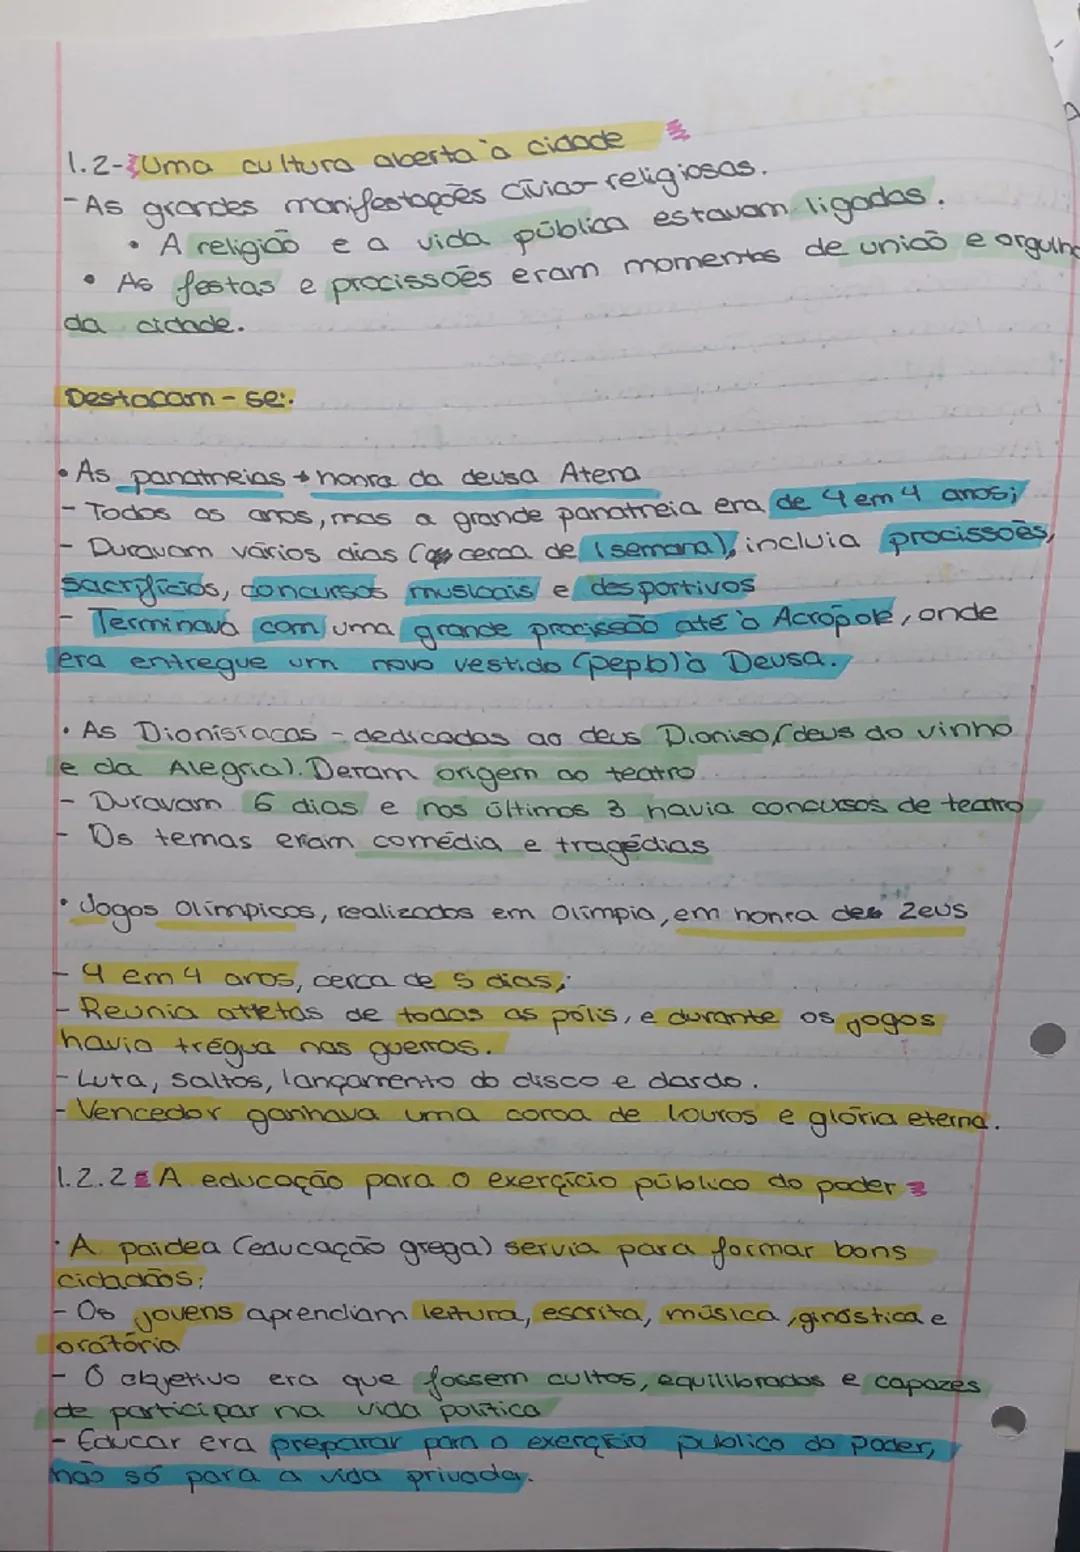 1.2- Uma cultura aberta à cidade
- As grandes manifestações cívico-religiosas.
• A religião e a vida pública estavam ligadas.
• As festas e procissões eram momentos de união e orgulho
da cidade.
Destacam-se:.
• As panatneias → honra da deusa Atena
- Todos os anos, mas a grande panatneia era de 4 em 4 anos;
- Duravam vários dias (cerca de 1 semana), incluia procissões,
sacrifícios, concursos musicais e desportivos
- Terminava com uma grande procissão até à Acrópole, onde
era entregue um novo vestido (peplo) à Deusa.
• As Dionisíacas - dedicadas ao deus Dioniso, (deus do vinho
e da Alegria). Deram origem ao teatro.
- Duravam 6 dias e nos últimos 3 havia concursos de teatro
- Os temas eram comédia e tragédias
• Jogos Olímpicos, realizados em Olímpia, em honra de Zeus
- 4 em 4 anos, cerca de 5 dias;
- Reunia atletas de todas as pólis, e durante os jogos
havia trégua nas guerras.
- Luta, saltos, lançamento do disco e dardo.
- Vencedor ganhava uma coroa de louros e glória eterna.
1.2.2 A educação para o exercício público do poder
• A paidea (educação grega) servia para formar bons
cidadãos;
- Os jovens aprendiam leitura, escrita, música, ginástica e
oratória
- O objetivo era que fossem cultos, equilibrados e capazes
de participar na vida política
- Educar era preparar para o exercício público do poder,
não só para a vida privada.